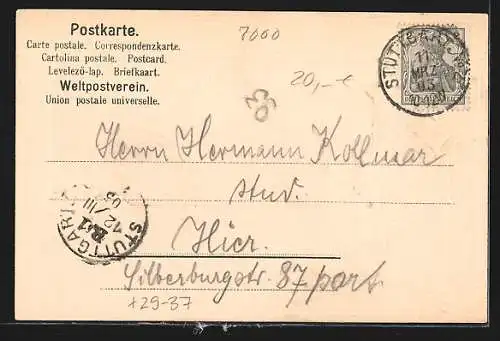 Postkarte.
Carte postale. Correspondenzkarte.
Cartolina postale. Postcard.
Levelező-lap. Briefkaart.
Weltpostverein.
Union postale universelle.
7000
20,-€
STUTTGART
11
MRZ
03
Herrn Hermann Kollmar
stud.
Hier.
Silberburgstr. 87 part.
STUTTGART
12/III
03
+29-37